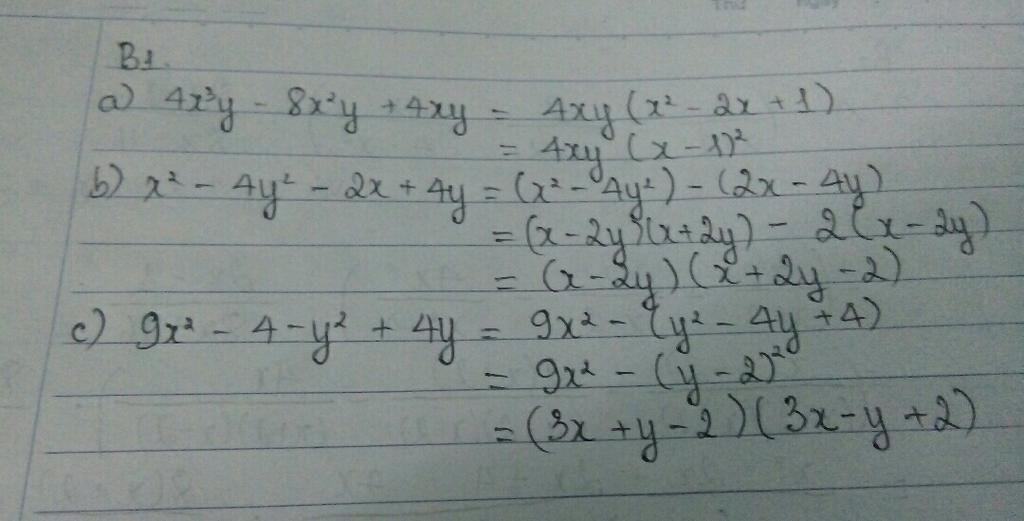 B1.
a) 4x³y - 8x²y + 4xy = 4xy (x² - 2x + 1)
= 4xy (x - 1)²
b) x² - 4y² - 2x + 4y = (x² - 4y²) - (2x - 4y)
= (x - 2y)(x + 2y) - 2(x - 2y)
= (x - 2y)(x + 2y - 2)
c) 9x² - 4 - y² + 4y = 9x² - (y² - 4y + 4)
= 9x² - (y - 2)²
= (3x + y - 2)(3x - y + 2)